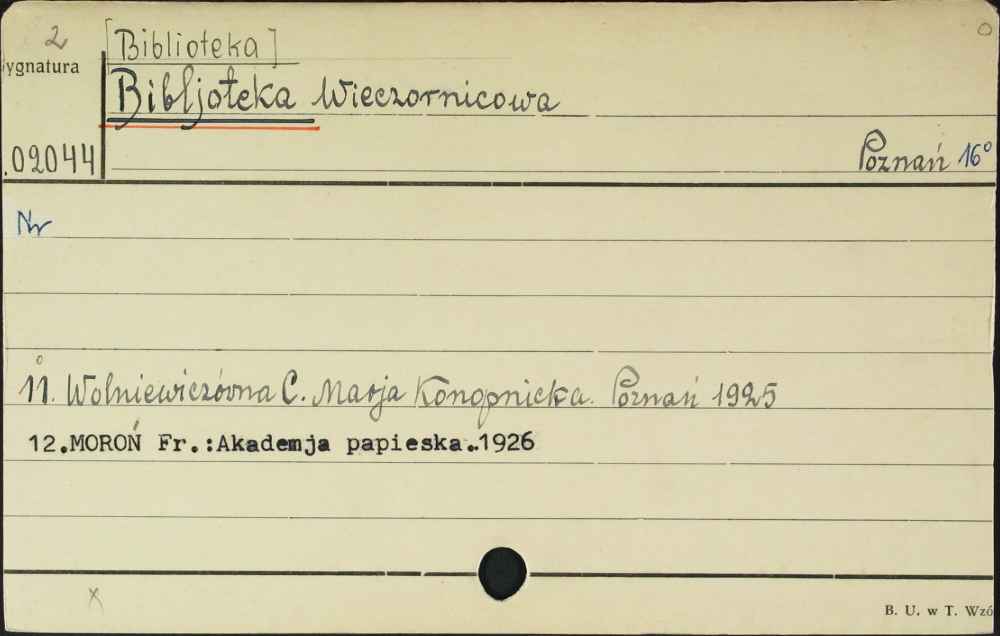 2
[Biblioteka]
ygnatura
Bibljoteka Wieczornicowa
.02044
Poznań 16°
Nr
11. Wolniewiczówna C. Marja Konopnicka. Poznań 1925
12.MOROŃ Fr.:Akademja papieska..1926
x
B. U. w T. Wzó